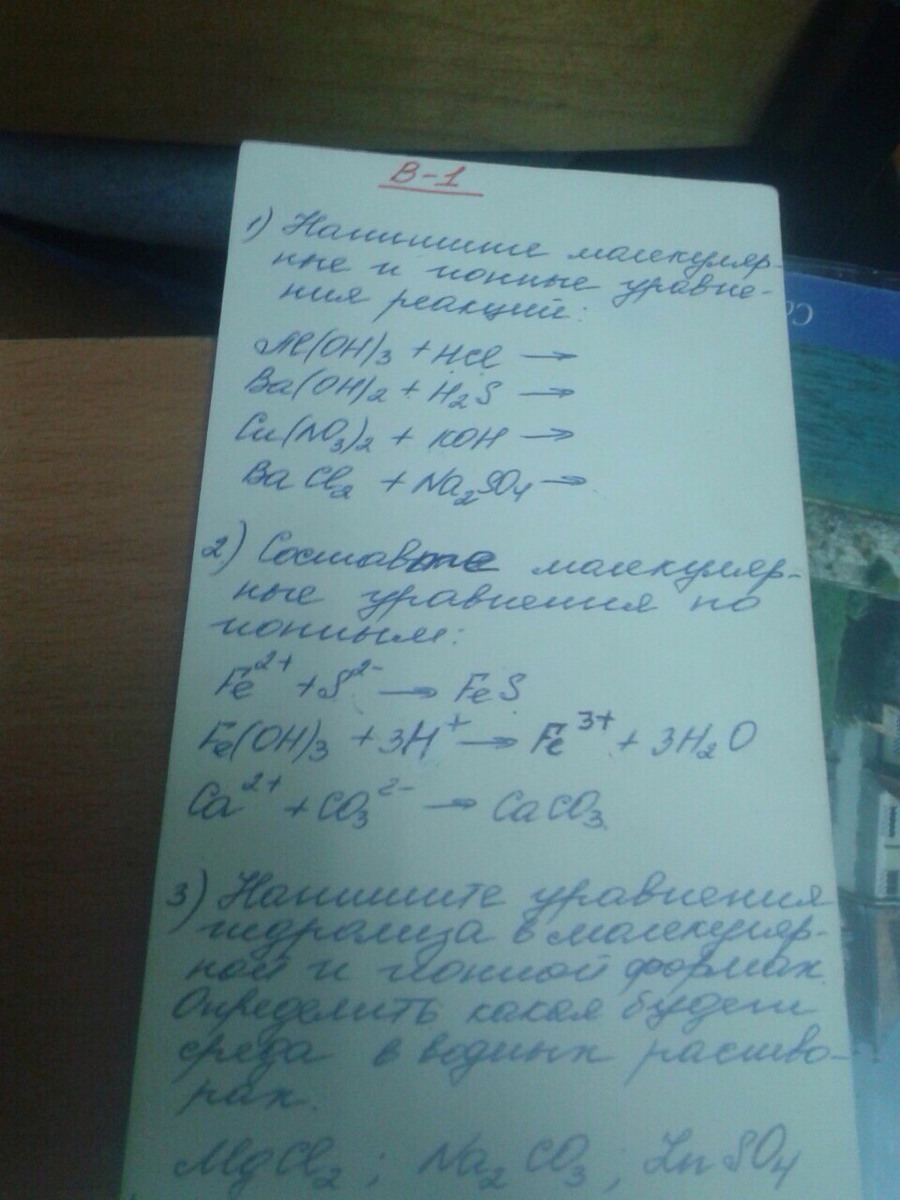 В-1
1) Напишите молекуляр-
ные и ионные уравне-
ния реакций:
Al(OH)3 + HCl →
Ba(OH)2 + H2S →
Cu(NO3)2 + KOH →
BaCl2 + Na2SO4 →
2) Составте молекуляр-
ные уравнения по
ионным:
Fe2+ + S2- → FeS
Fe(OH)3 + 3H+ → Fe3+ + 3H2O
Ca2+ + CO3 2- → CaCO3
3) Напишите уравнения
гидролиза в молекуляр-
ной и ионной формах.
Определить какая будет
среда в водных раство-
рах.
MgCl2; Na2CO3; ZnSO4